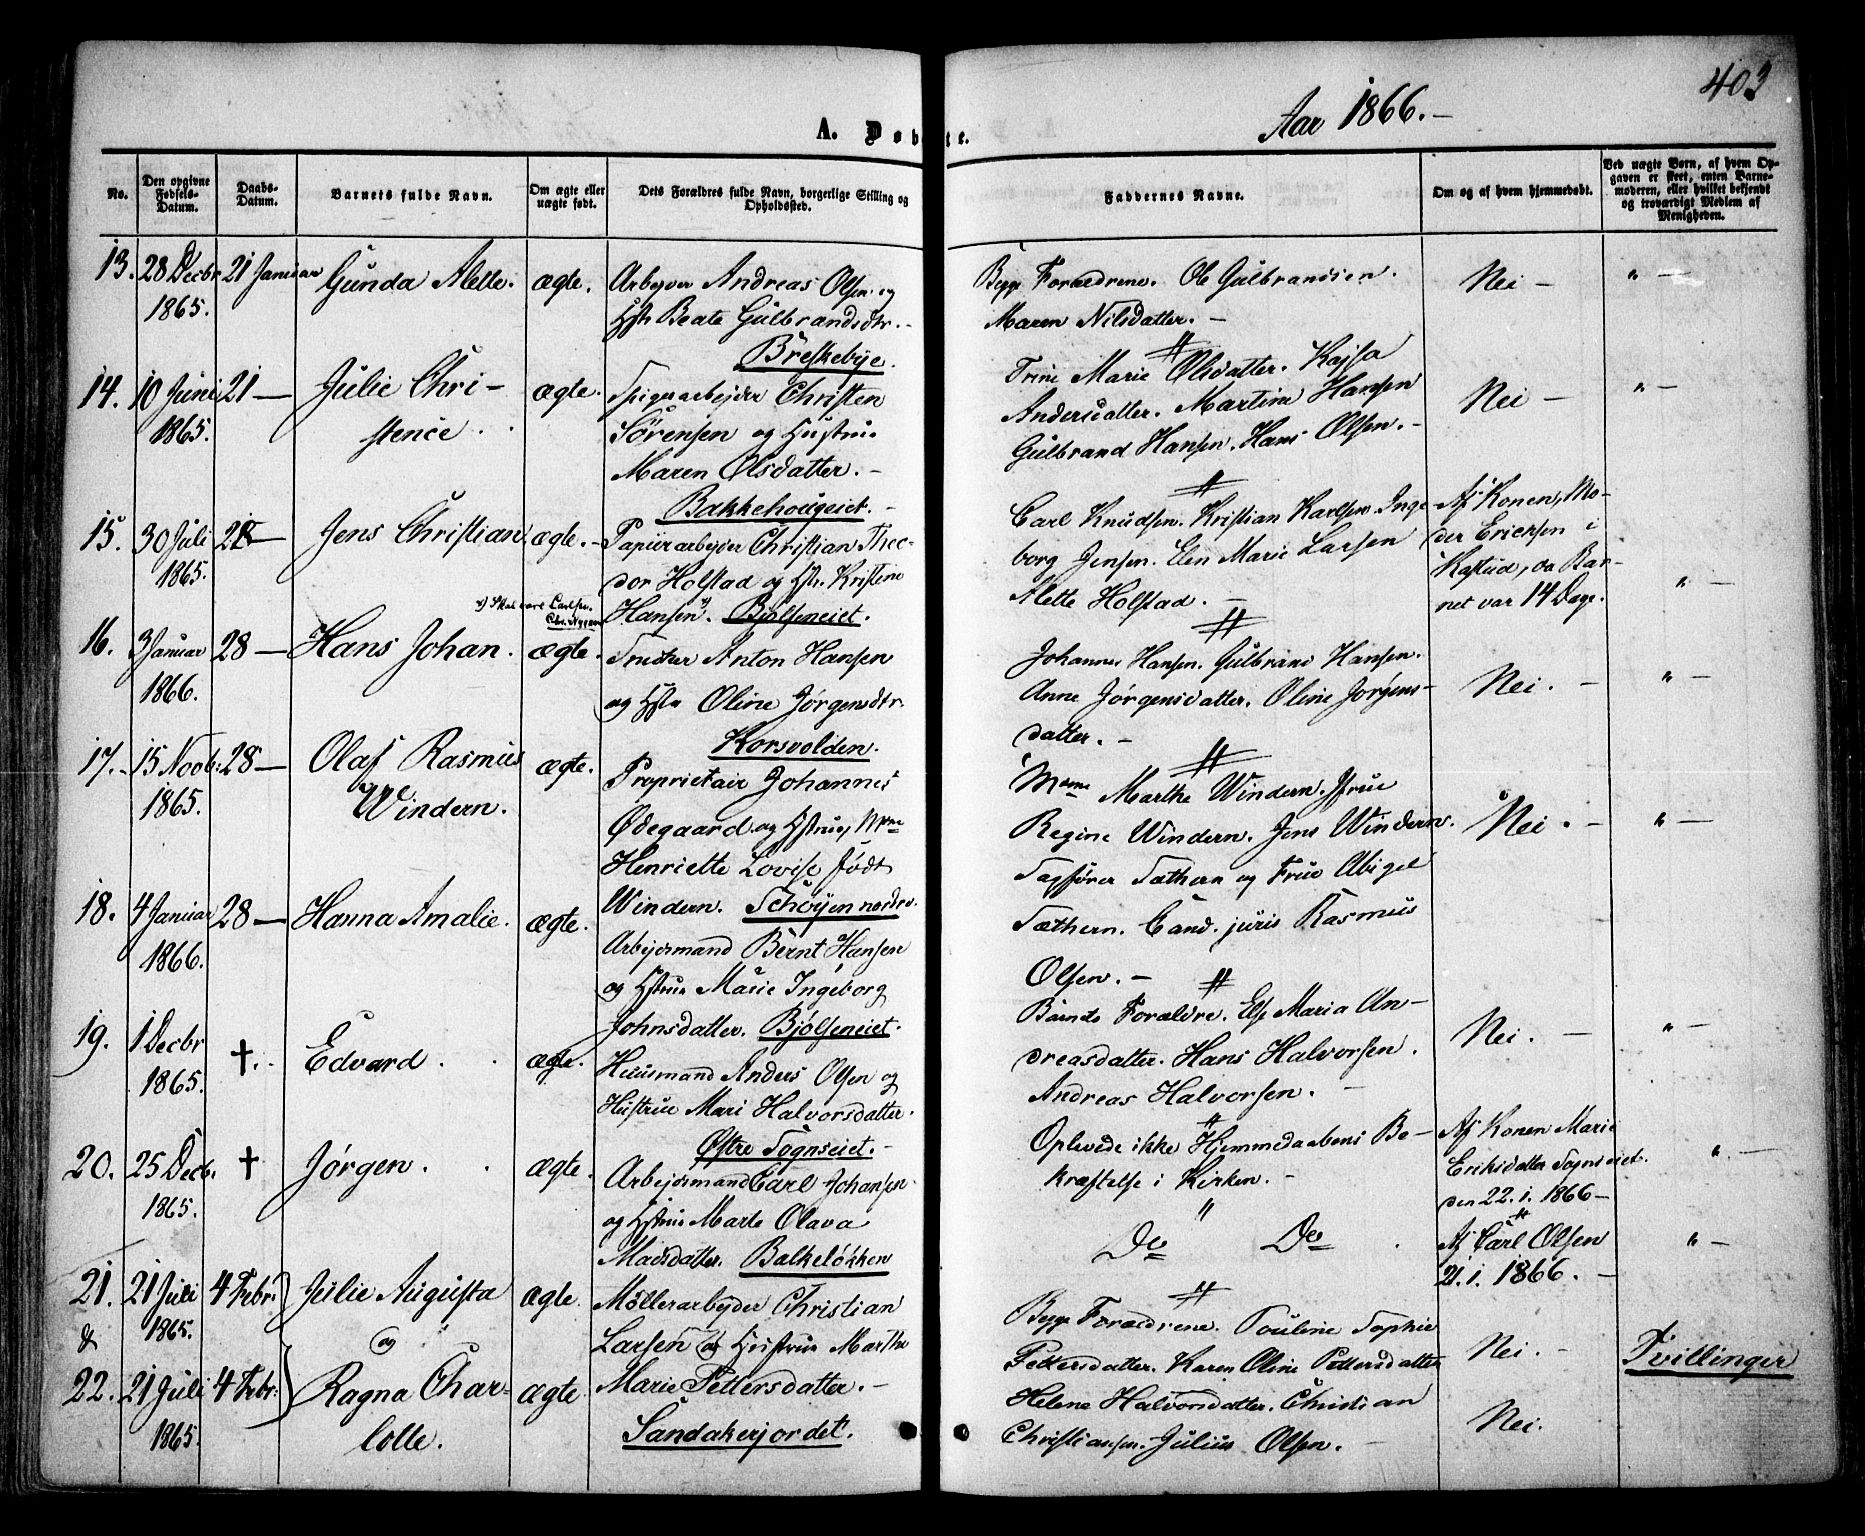 403
Aar 1866.-
A. Døbte.
No.
Den opgivne Fødsels-Datum.
Daabs-Datum.
Barnets fulde Navn.
Om ægte eller uægte født.
Dets Forældres fulde Navn, borgerlige Stilling og Opholdssted.
Faddernes Navne.
Om og af hvem hjemmedøbt.
Ved uægte Børn, af hvem Opgaven er skeet, enten Barnemoderen, eller hvilket bekjendt og troværdigt Medlem af Menigheden.
13. 28 Decbr 1865. 21 Januar Gunda Alette. ægte.
Arbeyder Andreas Olsen og
Hstr Beate Gülbrandsdtr.-
Breskebye.
Begge Forældrene. Ole Gülbrandsen.
Maren Nilsdatter.-
Nei -
" -
14. 10 Juni 1865. 21 - Julie Chri-
stence. ægte.
Spigerarbejder Christen
Sörensen og Hustrue
Maren Olsdatter.-
Bakkehougeiet.-
Trine Marie Olsdatter. Kajsa
Andersdatter. Martine Hansen
Gülbrand Hansen. Hans Olsen.-
Nei -
" -
15. 30 Juli 1865. 28 - Jens Christian ægte.-
Papiirarbejder Christian Theo-
dor Holstad og Hstr. Kristine
Hansen. Bjølseneiet.
Carl Knudsen. Kristian Karlsen. Inge-
borg Jensen. Elen Marie Larsen
Alette Holstad.-
Af Konen, Mo-
der Ericksen i
Kastud, da Bar-
net var 14 Dage.
" -
16. 3 Januar 1866. 28 - Hans Johan. ægte.
Snedker Anton Hansen
og Hstr Oline Jørgensdtr.
Korsvolden.
Johannes Hansen. Gülbrand Hansen.
Anne Jørgensdatter. Oline Jørgens-
datter.-
Nei. -
" -
17.- 15 Novb. 1865. 28 - Olaf Rasmus
Windern. ægte.
Proprietair Johannes
Ødegaard og Hstrue, Mme
Henriette Lovise født
Windern. Schøyen nordre.
Mame Marthe Windern. Frue
Regine Windern. Jens Windern.
Sagfører Sæthern og Frue Abigel
Sæthern. Cand. juris Rasmus
Olsen.-
Nei. -
" -
18. 4 Januar 1866. 28 - Hanna Amalie. ægte.
Arbejdsmand Bernt Hansen
og Hstrue Marie Ingeborg
Johnsdatter. Bjølseneiet.
Barnets Forældre. Else Maria An-
dreasdatter. Hans Halvorsen.
Andreas Halvorsen.-
Nei. -
" -
19. 1 Decbr 1865. †. Edvard. ægte.
Huusmand Anders Olsen og
Hustrue Mari Halvorsdatter.
Østre Sognseiet.-
Oplevede ikke Hjemmedaabens Be-
kræftelse i Kirken.-
Af Konen Marie
Eriksdatter Sognseiet.
den 22. i. 1866-
". -
20. 25 Decb. 1865. † Jørgen. ægte.
Arbejdsmand Carl Johansen
og Hstrue Marte Olava
Madsdatter. Balkeløkken
Do Do.
Af Carl Olsen
21. i. 1866.-
" -
21. 21 Juli 1865. 4 Febr. Julie Augusta ægte.
& og
22. 21 Juli 1865. 4 Febr: Ragna Char-
lotte. ægte
Møllerarbejder Christian
Larsen og Hustrue Marthe
Marie Pettersdatter.-
Sandakerjordet.
Begge Forældrene. Pouline Sophie
Pettersdatter. Karen Oline Pettersdatter
Helene Halvorsdatter. Christian
Christiansen. Julius Olsen.-
Nei. -
Nei.
Tvillinger